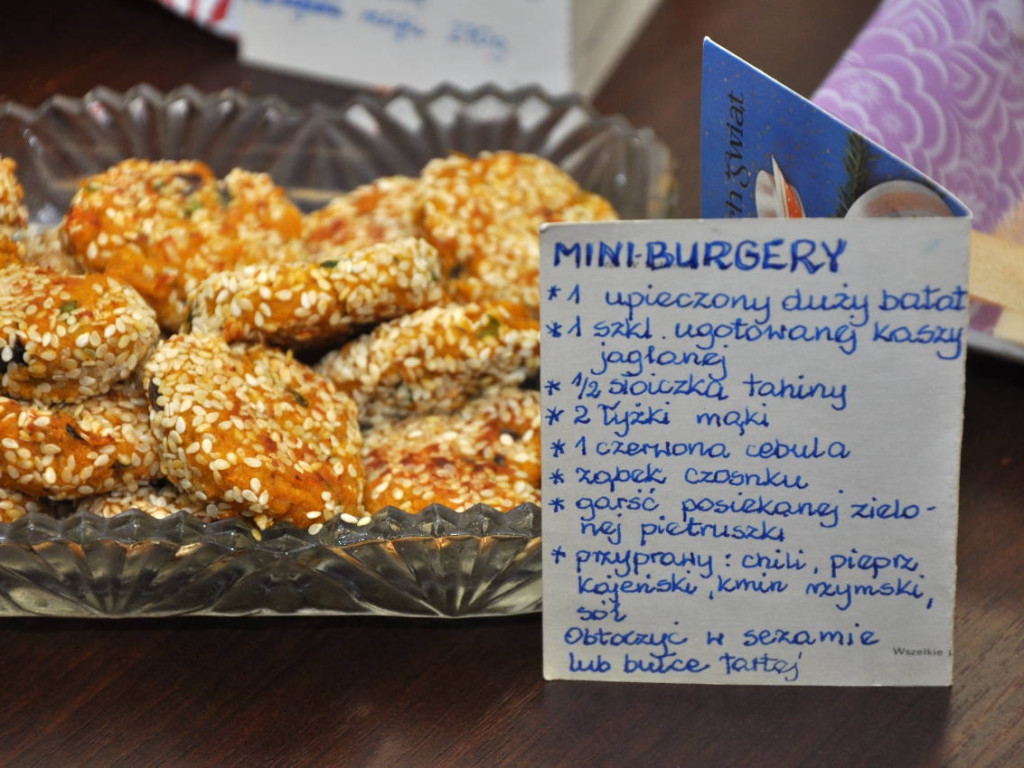 230g
Świat
MINI-BURGERY
* 1 upieczony duży batat
* 1 szkl. ugotowanej kaszy
jaglanej
* 1/2 słoiczka tahiny
* 2 łyżki mąki
* 1 czerwona cebula
* ząbek czosnku
* garść posiekanej zielo-
nej pietruszki
* przyprawy: chili, pieprz
kajeński, kmin rzymski,
sól
Obtoczyć w sezamie
lub bułce tartej
Wszelkie